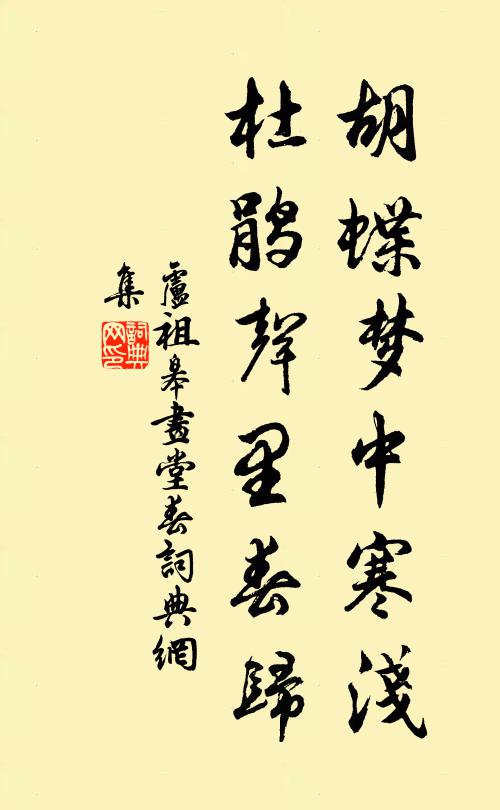 胡蝶梦中寒淺
杜鹃聲里春歸
盧祖皋畫堂春詞典網
集
詞典网印